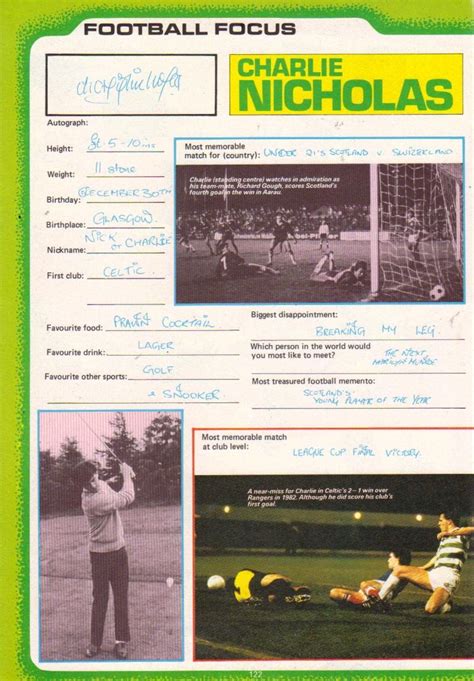 FOOTBALL FOCUS
CHARLIE
NICHOLAS
Autograph:
Height: 5-10ins
Weight: 11 stone
Birthday: DECEMBER 30TH
Birthplace: GLASGOW
Nickname: NICK or CHARLIE
First club: CELTIC
Most memorable
match for (country): UNDER 21'S SCOTLAND v. SWIZERLAND
Charlie (standing centre) watches in admiration as
his team-mate, Richard Gough, scores Scotland's
fourth goal in the win in Aarau.
Favourite food: PRAWN COCKTAIL
Favourite drink: LAGER
Favourite other sports: GOLF
& SNOOKER
Biggest disappointment:
BREAKING MY LEG.
Which person in the world would
you most like to meet? THE NEXT
MARILYN MUNROE
Most treasured football memento:
SCOTLAND'S
YOUNG PLAYER OF THE YEAR
Most memorable match
at club level:
LEAGUE CUP FINAL VICTORY.
A near-miss for Charlie in Celtic's 2–1 win over
Rangers in 1982. Although he did score his club's
first goal.
122